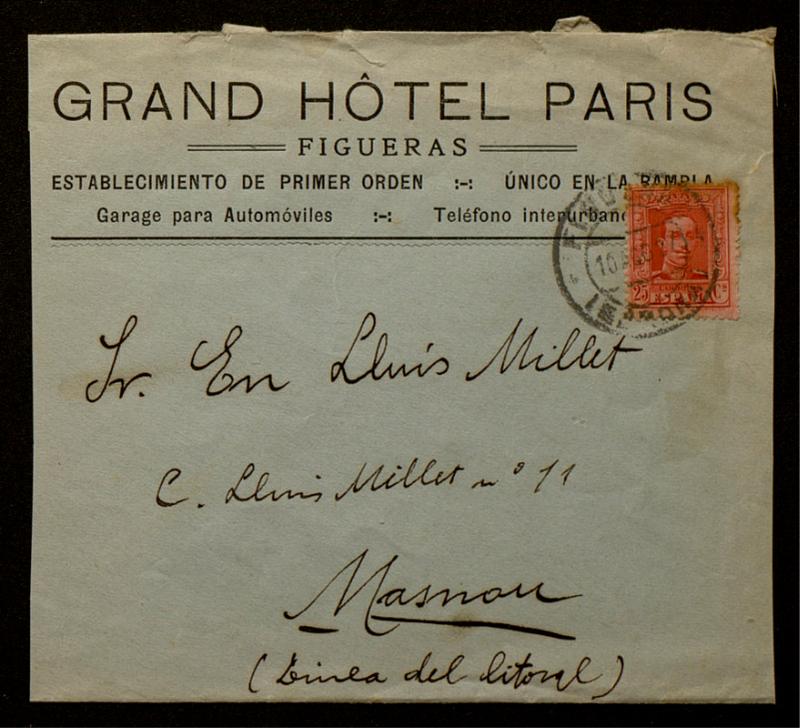 GRAND HÔTEL PARIS
FIGUERAS
ESTABLECIMIENTO DE PRIMER ORDEN :-: ÚNICO EN LA RAMBLA
Garage para Automóviles :-: Teléfono interurbano
25 ESPAÑA Cs
Sr. En Lluis Millet
C. Lluis Millet nº 11
Masnou
(Linea del litoral)